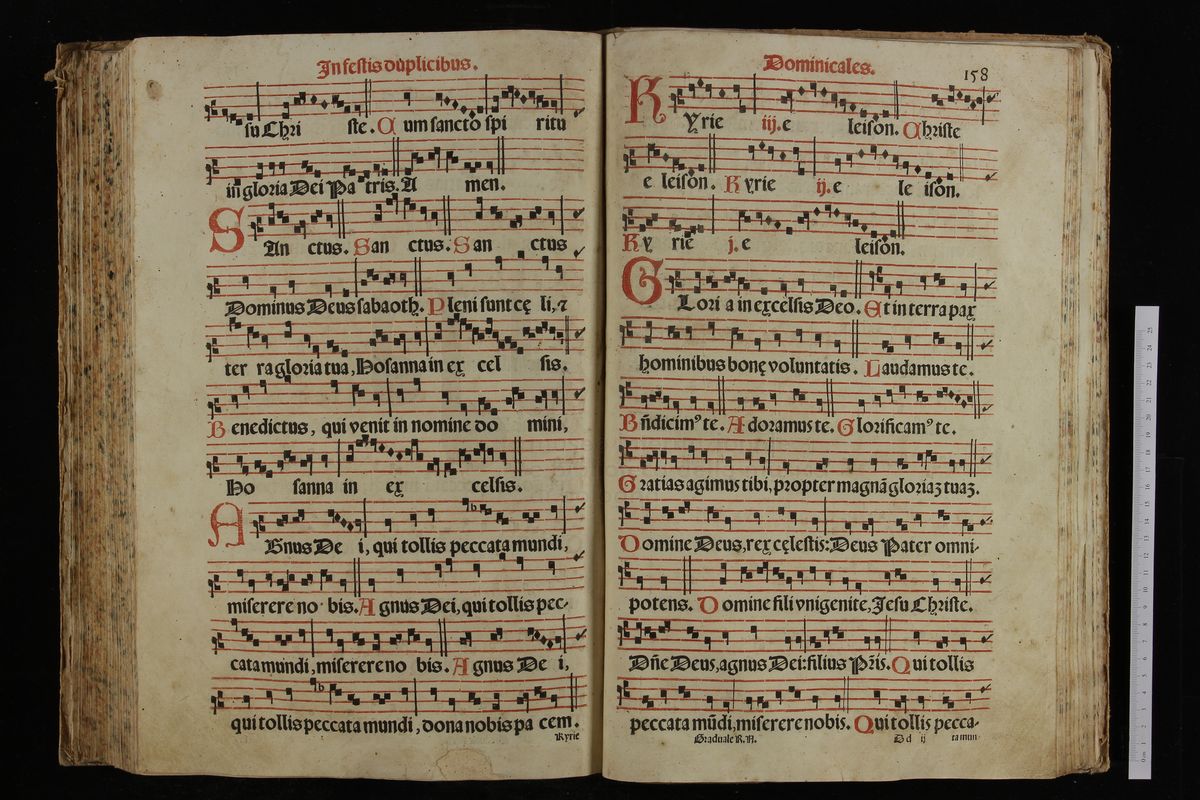 In festis duplicibus.
su Chri ste. C um sancto spi ritu
in gloria Dei Pa tris. A men.
SAn ctus. San ctus. San ctus
Dominus Deus sabaoth. Pleni sunt cę li, ⁊
ter ra gloria tua, Hosanna in ex cel sis.
Benedictus, qui venit in nomine do mini,
Ho sanna in ex celsis.
AGnus De i, qui tollis peccata mundi,
miserere no bis. Agnus Dei, qui tollis pec-
cata mundi, miserere no bis. Agnus De i,
qui tollis peccata mundi, dona nobis pa cem.
Kyrie
Dominicales.
158
KYrie iij. e leison. Christe
e leison. Kyrie ij. e le ison.
Ky rie j. e leison.
GLori a in excelsis Deo. Et in terra pax
hominibus bonę voluntatis. Laudamus te.
Bñdicimꝰ te. Adoramus te. Glorificamꝰ te.
Gratias agimus tibi, propter magnã gloriaʒ tuaʒ.
Domine Deus, rex cęlestis: Deus Pater omni-
potens. Domine fili vnigenite, Jesu Christe.
Dñe Deus, agnus Dei: filius Pr̃is. Qui tollis
peccata mũdi, miserere nobis. Qui tollis pecca-
Graduale R.A. Dd ij ta mun-